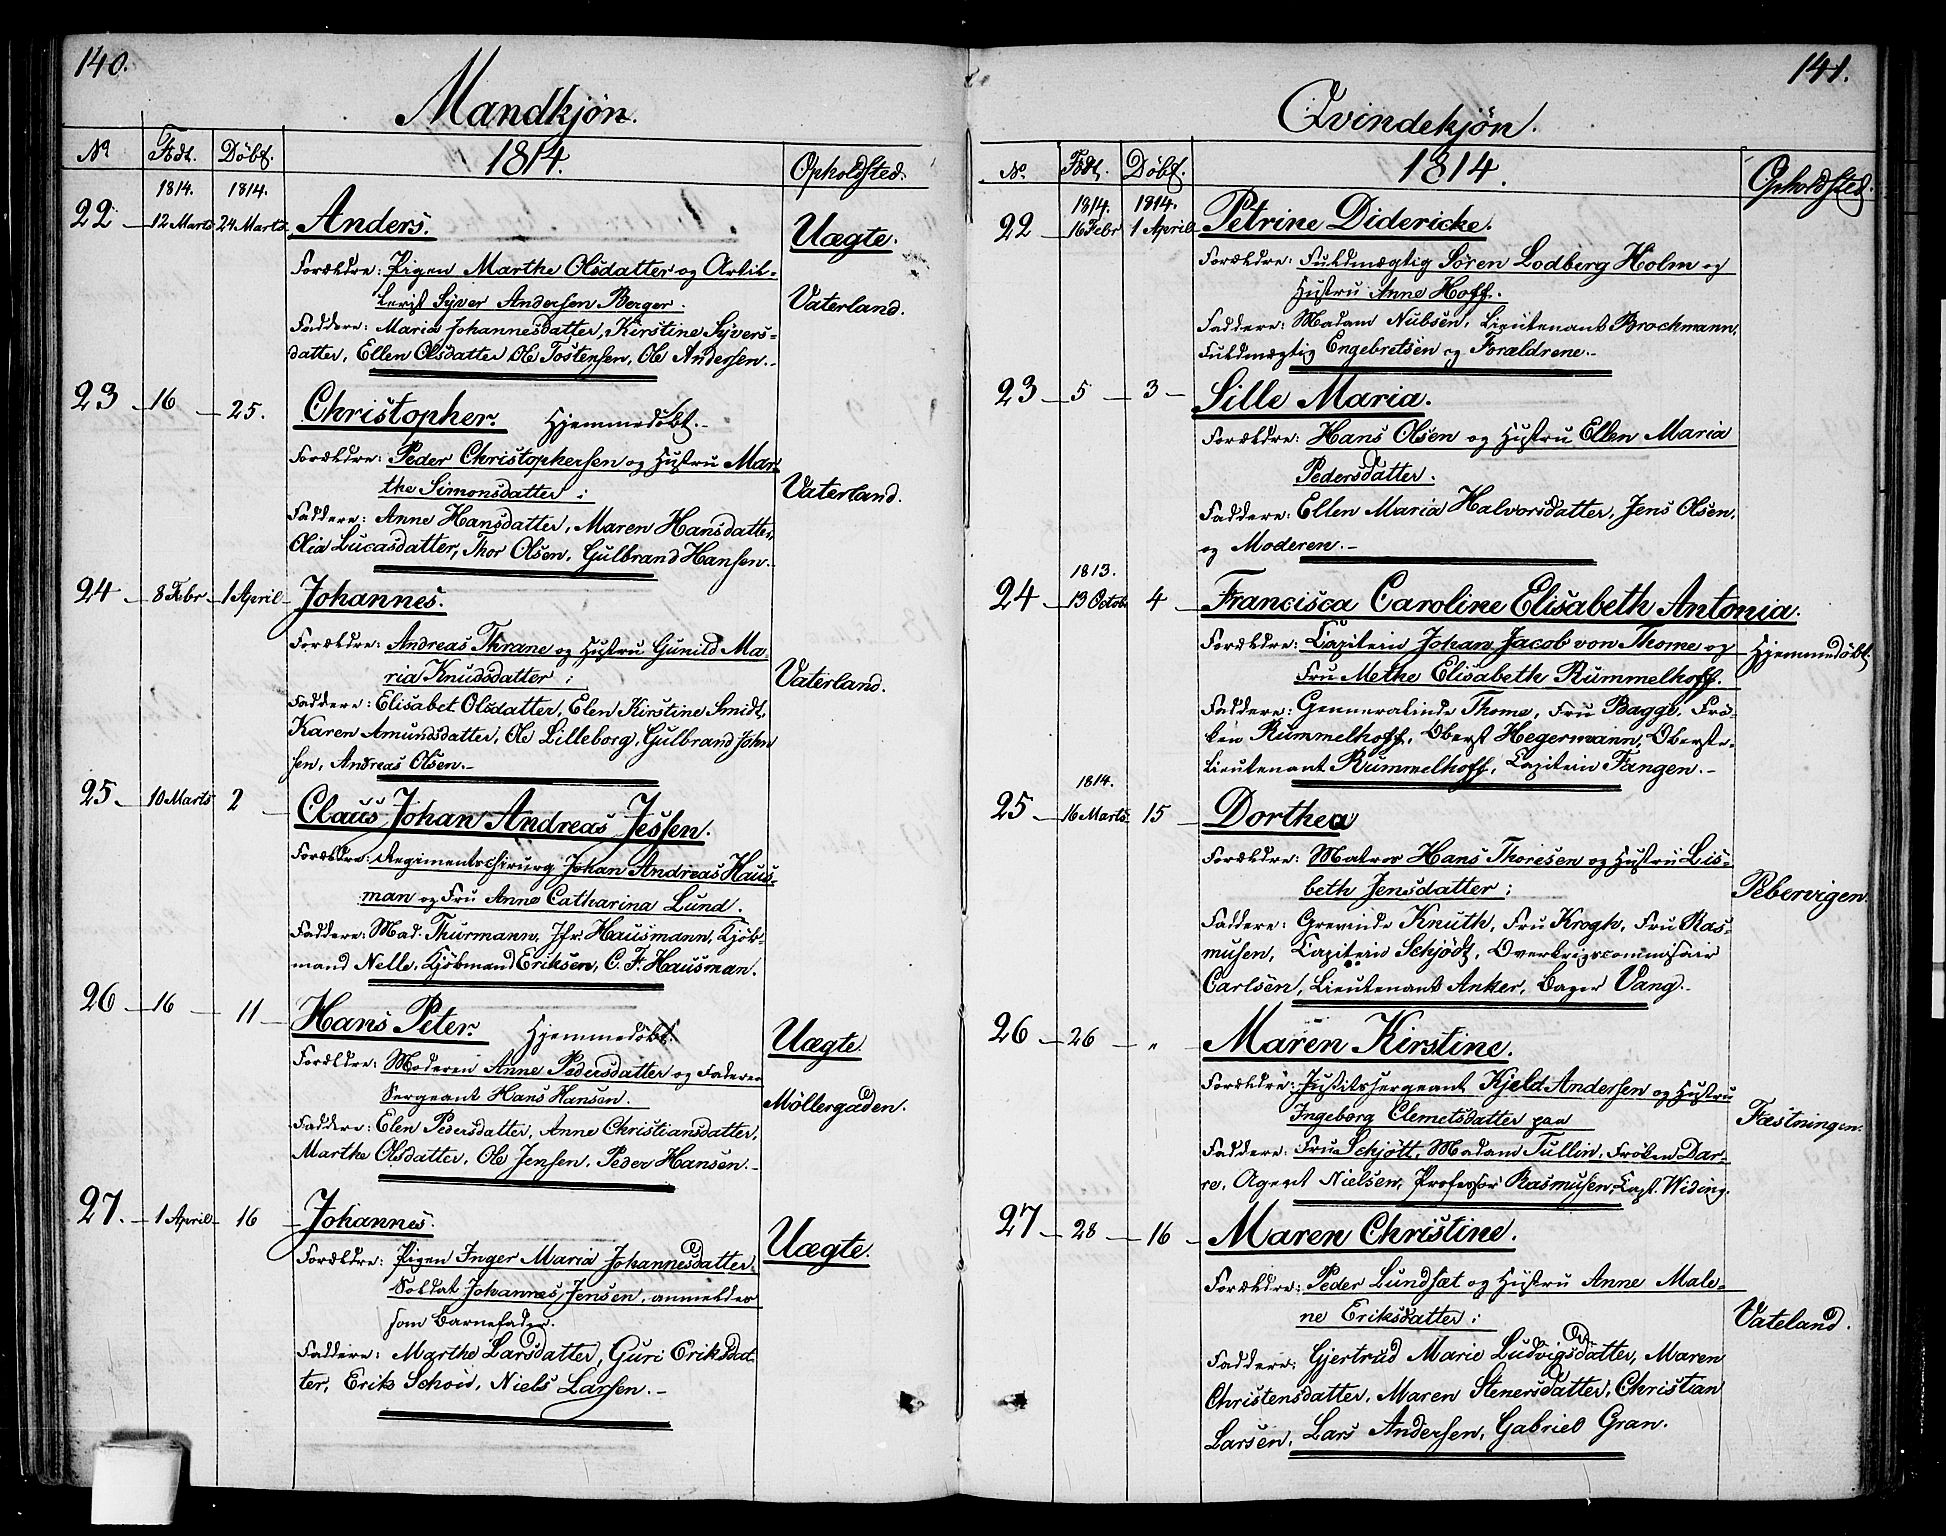 140.
Mandkjøn.
No Født. Döbt. 1814. Opholdsted.
1814. 1814.
22 12 Marts 24 Marts Anders. Uægte.
Forældre: Pigen Marthe Olsdatter og Artil-
lerist Syver Andersen Berger. Vaterland.
Faddere: Maria Johannesdatter, Kirstine Syvers-
datter, Ellen Olsdatter Ole Tostensen, Ole Andersen.
23 16 25. Christopher. Hjemmedøbt.
Forældre: Peder Christophersen og Hustru Mar-
the Simonsdatter; Vaterland.
Faddere: Anne Hansdatter, Maren Hansdatter,
Olia Lucasdatter, Thor Olsen, Gulbrand Hansen.
24 8 Febr 1 April Johannes.
Forældre: Andreas Thrane og Hustru Gunild Ma-
ria Knudsdatter; Vaterland.
Faddere: Elisabet Olsdatter, Elen Kirstine Smidt,
Karen Amundsdatter, Ole Lilleborg, Gulbrand John
sen, Andreas Olsen.
25 10 Marts 2 Claus Johan Andreas Jessen.
Forældre: Regimentschirurg Johan Andreas Haus-
man og Fru Anne Catharina Lund.
Faddere: Mad. Thurmann, Jfr. Hausmann, Kjöb-
mand Nelle, Kjöbmand Eriksen, C. F. Hausman.
26 16 11 Hans Peter. Hjemmedøbt. Uægte.
Forældre: Moderen Anne Pedersdatter og Faderen
Sergeant Hans Hansen. Møllergaden.
Faddere: Elen Pedersdatter, Anne Christiansdatter,
Marthe Olsdatter, Ole Jensen, Peder Hansen.
27. 1 April 16 Johannes. Uægte.
Forældre: Pigen Inger Maria Johannesdatter,
Soldat Johannes Jensen, anmeldes
som Barnefader.
Faddere: Marthe Larsdatter, Guri Eriksdat
ter, Erik Schoid, Niels Larsen.
141.
Qvindekjøn.
No. Født. Döbt. 1814. Opholdsted.
1814. 1814.
22 16 Febr 1 April Petrine Didericke.
Forældre: Fuldmægtig Søren Lodberg Holm og
Hustru Anne Hoff.
Faddere: Madam Nubsen, Lieutenant Brochmann,
Fuldmægtig Engebretsen og Forældrene.
23 5 3 Sille Maria.
Forældre: Hans Olsen og Hustru Ellen Maria
Pedersdatter.
Faddere: Ellen Maria Halvorsdatter, Jens Olsen,
og Moderen.
1813.
24 13 Octob 4 Francisca Caroline Elisabeth Antonia.
Forældre: Capitein Johan Jacob von Thome og Hjemmedöbt.
Fru Methe Elisabeth Rummelhoff.
Faddere: Genneralinde Thome, Fru Bagge, Frö-
ken Rummelhoff, Oberst Hegermann, Oberst-
Lieutenant Rummelhoff, Capitein Fangen.
1814.
25 16 Marts 15 Dorthea
Forældre: Matros Hans Thoresen og Hustru Lis-
beth Jensdatter; Pebervigen.
Faddere: Grevinde Knuth, Fru Krogh, Fru Ras-
musen, Capitein Schjödt, Overkrigscommissair
Carlsen, Lieutenant Anker, Bager Vang.
26 26 " Maren Kirstine.
Forældre: Justitssergeant Kjeld Andersen og Hustru
Ingeborg Clemetsdatter paa Fæstningen.
Faddere: Fru Schjött, Madam Tullin, Fröken Dar-
re, Agent Nielsen, Professor Rasmusen, Capt. Widing.
27 28 16 Maren Christine.
Forældre: Peder Lundsæt og Hustru Anne Male-
ne Eriksdatter; Vateland.
Faddere: Gjertrud Marie Ludvigsdatter, Maren
Christensdatter, Maren Stenersdatter, Christian
Larsen, Lars Andersen, Gabriel Gran.